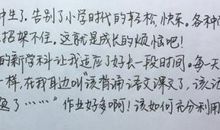 中生了。告别了小学时代的轻松快乐，各种
招架不住，这就是成长的烦恼吧！
的新学科让我适应了好长一段时间。每一天
样，在我耳边叫“该背诵语文课文了，该
题了……”作业好多啊！该如何充分利用